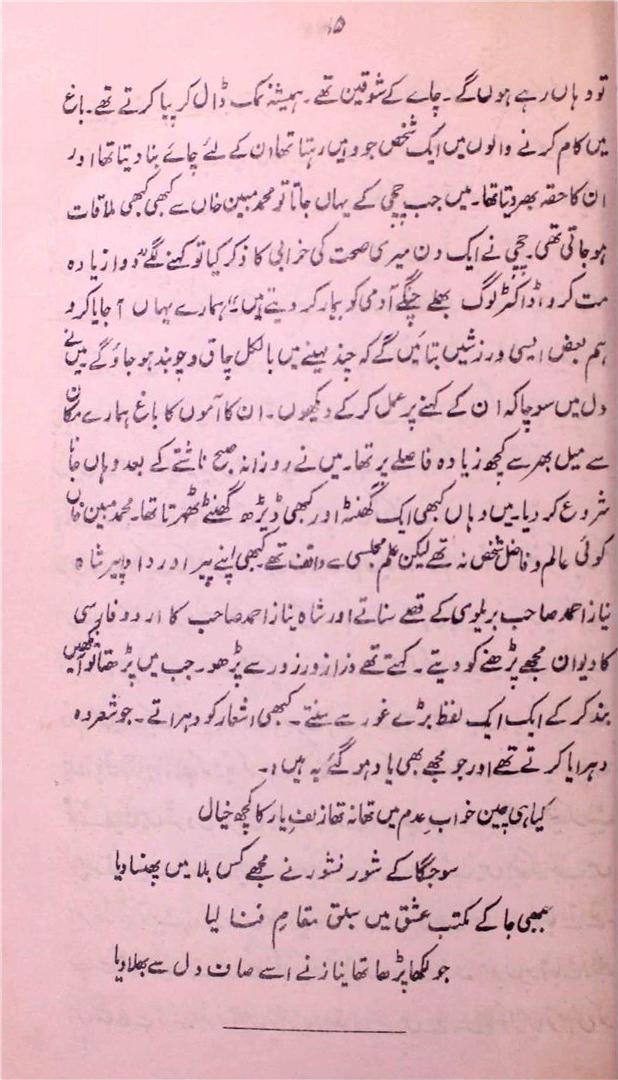 ۱۵
تو وہاں رہے ہوں گے۔ چاے کے شوقین تھے۔ ہمیشہ نمک ڈال کر پیا کرتے تھے۔ باغ
میں کام کرنے والوں میں ایک شخص جو وہیں رہتا تھا ان کے لئے چائے بنا دیتا تھا اور
ان کا حقہ بھر دیتا تھا۔ میں جب چچی کے یہاں جاتا تو محمد مبین خاں سے کبھی کبھی ملاقات
ہو جاتی تھی۔ چچی نے ایک دن میری صحت کی خرابی کا ذکر کیا تو کہنے لگے "دوا زیادہ
مت کرو، ڈاکٹر لوگ بھلے چنگے آدمی کو بیمار کر دیتے ہیں۔" ہمارے یہاں آجایا کرو
ہم بعض ایسی ورزشیں بتائیں گے کہ چند مہینے میں بالکل چاق و چوبند ہو جاؤ گے میں نے
دل میں سوچا کہ ان کے کہنے پر عمل کر کے دیکھوں۔ ان کا آموں کا باغ ہمارے مکان
سے میل بھر سے کچھ زیادہ فاصلے پر تھا۔ میں نے روزانہ صبح ناشتے کے بعد وہاں جانا
شروع کر دیا۔ میں وہاں کبھی ایک گھنٹہ اور کبھی ڈیڑھ گھنٹے ٹھہرتا تھا۔ محمد مبین خاں
کوئی عالم و فاضل شخص نہ تھے لیکن علم مجلسی سے واقف تھے۔ کبھی اپنے پیر اور دادا پیر شاہ
نیاز احمد صاحب بریلوی کے قصے سناتے اور شاہ نیاز احمد صاحب کا اردو فارسی
کا دیوان مجھے پڑھنے کو دیتے۔ کہتے تھے ذرا زور زور سے پڑھو۔ جب میں پڑھتا تو آنکھیں
بند کر کے ایک ایک لفظ بڑے غور سے سنتے۔ کبھی اشعار کو دہراتے۔ جو شعر وہ
دہرایا کرتے تھے اور جو مجھے بھی یاد ہو گئے یہ ہیں:۔
کیا ہی چین خواب عدم میں تھا نہ تھا زلفِ یار کا کچھ خیال
سو جگا کے شور نشور نے مجھے کس بلا میں پھنسا دیا
جبھی جا کے مکتب عشق میں سبق مقامِ فنا لیا
جو لکھا پڑھا تھا نیاز نے اسے صاف دل سے بھلا دیا